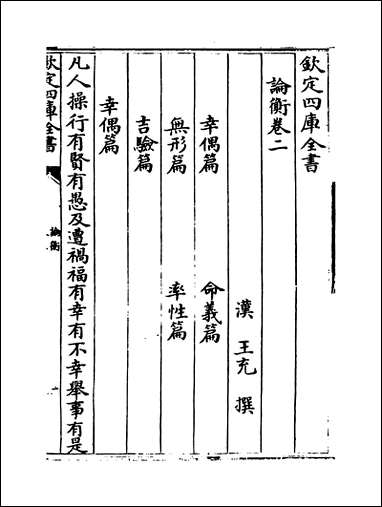 欽定四庫全書
論衡卷二
漢 王充 撰
幸偶篇 命義篇
無形篇 率性篇
吉驗篇
幸偶篇
凡人操行有賢有愚及遭禍福有幸有不幸舉事有是
欽定四庫全書
論衡